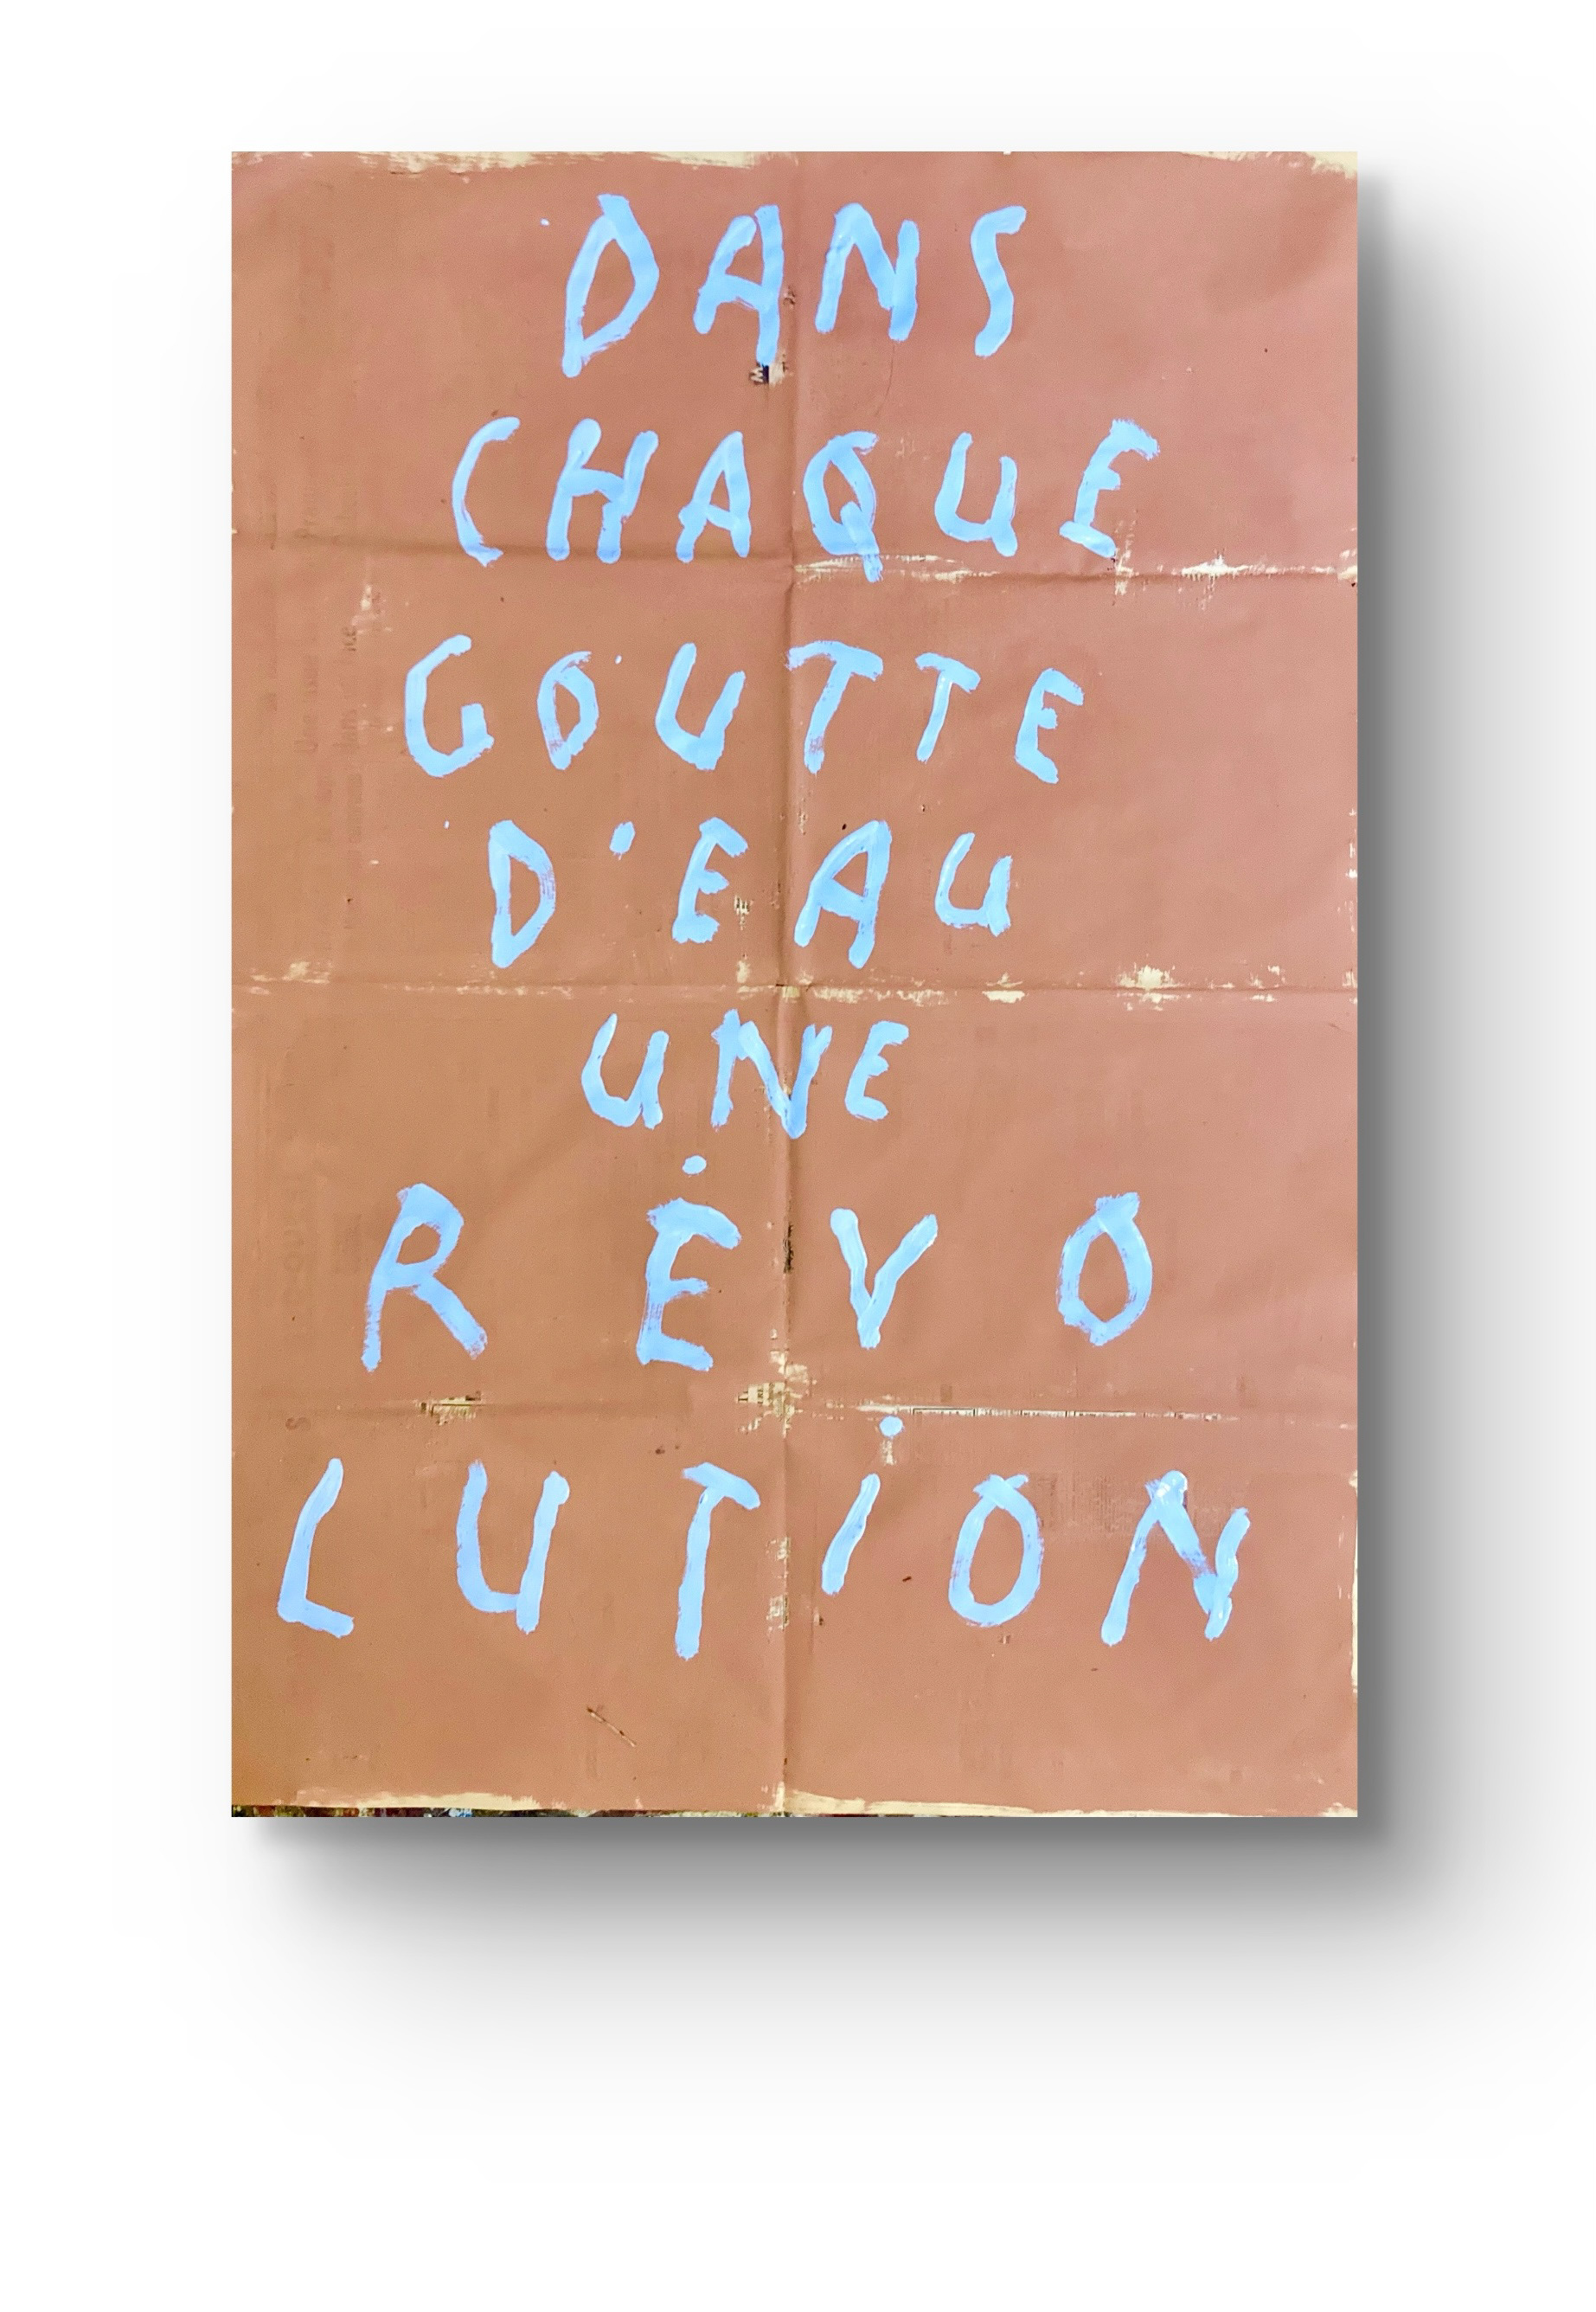 DANS
CHAQUE
GOUTTE
D'EAU
UNE
RÉVO
LUTION